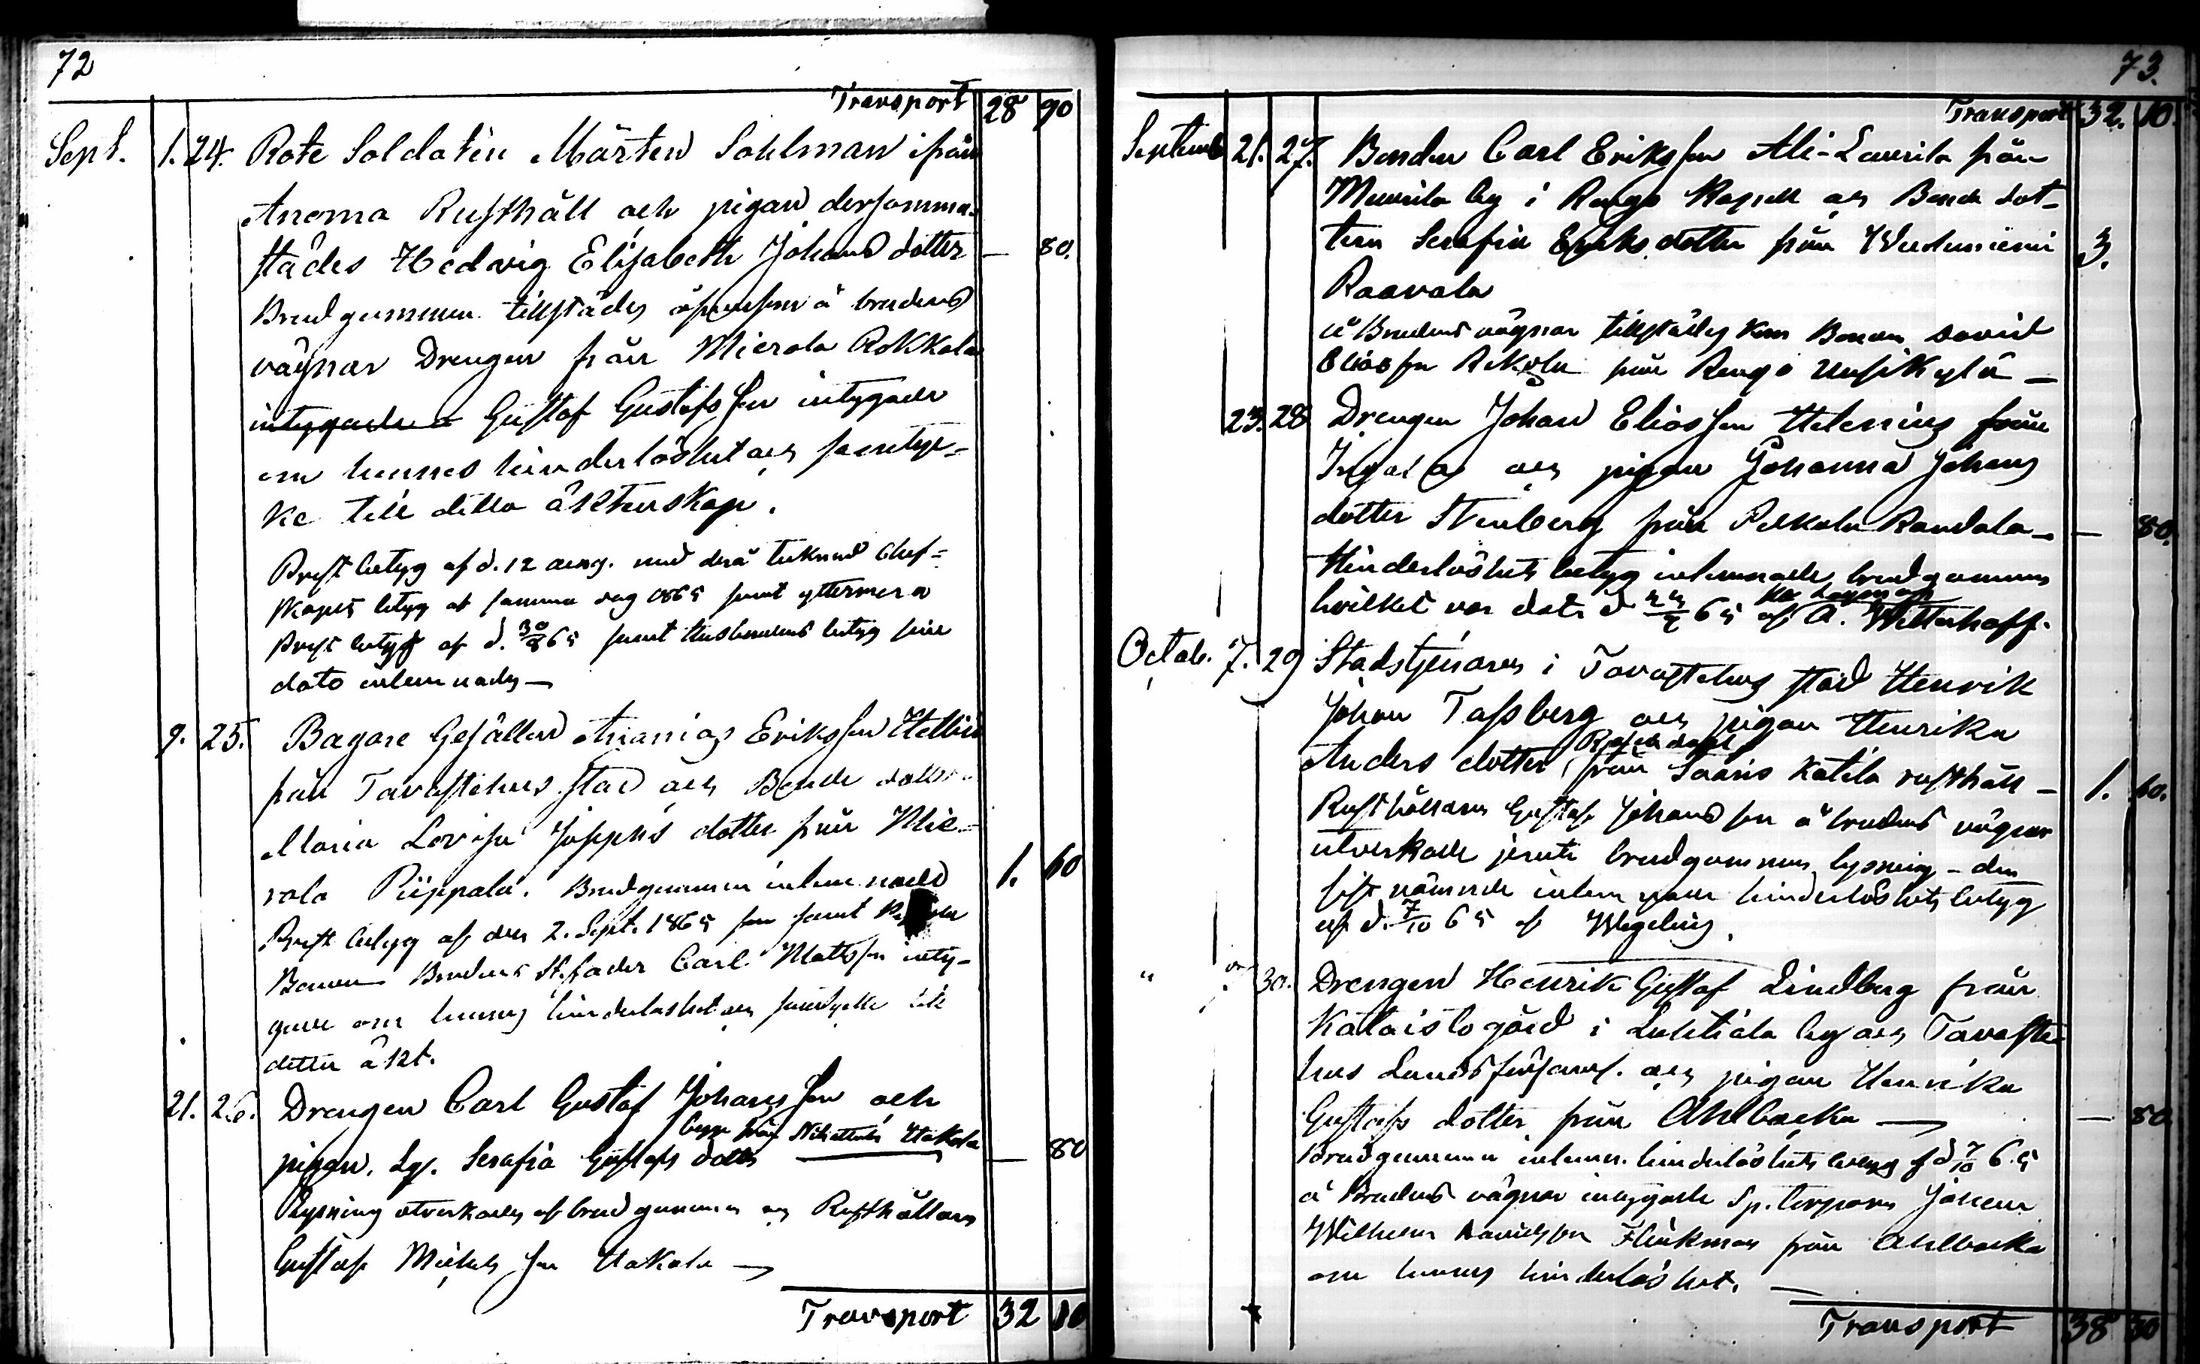 72
Transport 28 90
Sept. 1. 24. Rote Soldaten Mårten Sohlman ifrån
Anoma Rusthåll och pigan dersamma-
städes Hedvig Elisabeth Johans dotter — 80.
Brudgummen tillstädes å brudens
vägnar Drengen från Mierola Rokkola
intygade Gustaf Gustafsson intygade
om hennes hinderlöshet och samtyc-
ke till detta äktenskap.
Prest betyg af d. 12 aug. med derå teknad
betyg af samma dag 1865 samt yttermera
Prest betyg af d. 30/8 65 samt Husbondens betyg
dato inlemnades —
9. 25. Bagare Gesällen Ananias Eriksson Hellin
från Tavastehus stad och Bonde dotter
Maria Lovisa Josephs dotter från Mie-
rola Piippala. Brudgummen inlemnade 1. 60
Prest betyg af den 2. Sept. 1865 samt
Bonden Brudens St.fader Carl Mattsson inty-
gade om hennes hinderlöshet och samtycke till
detta äkt.
21. 26. Drengen Carl Gustaf Johansson och
begge från Hakola
pigan. Lg. Serafia Gustafs dotter — 80
Lysning utverkades af brudgummen och Rusthållaren
Gustaf Michelsson Hakola —
Transport 32 10
73.
Transport 32. 10.
Septemb 21. 27. Bonden Carl Eriksson Ali-Laurila från
by i Rengo Kapell och Bonde dot-
tern Serafia Eriks dotter från 3.
Raavala
å Brudens vägnar tillstädes kom Bonden David
Eliasson från Rengo Uusikylä —
23. 28. Drengen Johan Eliasson Helenius från
och pigan Johanna Johans
dotter Stenberg från Pekola Randala — 80.
Hinderlöshets betyg inlemnade brudgummen
hvilket var dat. d 65 af A. Wetterhoff.
Octob. 7. 29 Stadstjenaren i Tavastehus stad Henrik
Johan Tassberg och pigan Henrika
Anders dotter från Saaris Katila rusthåll — 1. 60.
Rusthållaren Gustaf Johansson å brudens vägnar
utverkade jemte brudgummen lysning — den
sist nämnde inlemnade hinderlöshets betyg
af d. 7/10 65 af Wegelius.
" 30. Drengen Henrik Gustaf Lindberg från
Kataisto gård i by och Tavaste-
hus Landsförsaml. och pigan Henrika
Gustafs dotter från Ahlbacka — 80.
Brudgummen inlemn. hinderlöshets betyg af d 7/10 65
å Brudens vägnar intygade Sp. torparn Johan
Wilhelm Davidsson Flinkman från Ahlbacka
om hennes hinderlöshet. —
Transport 38 30